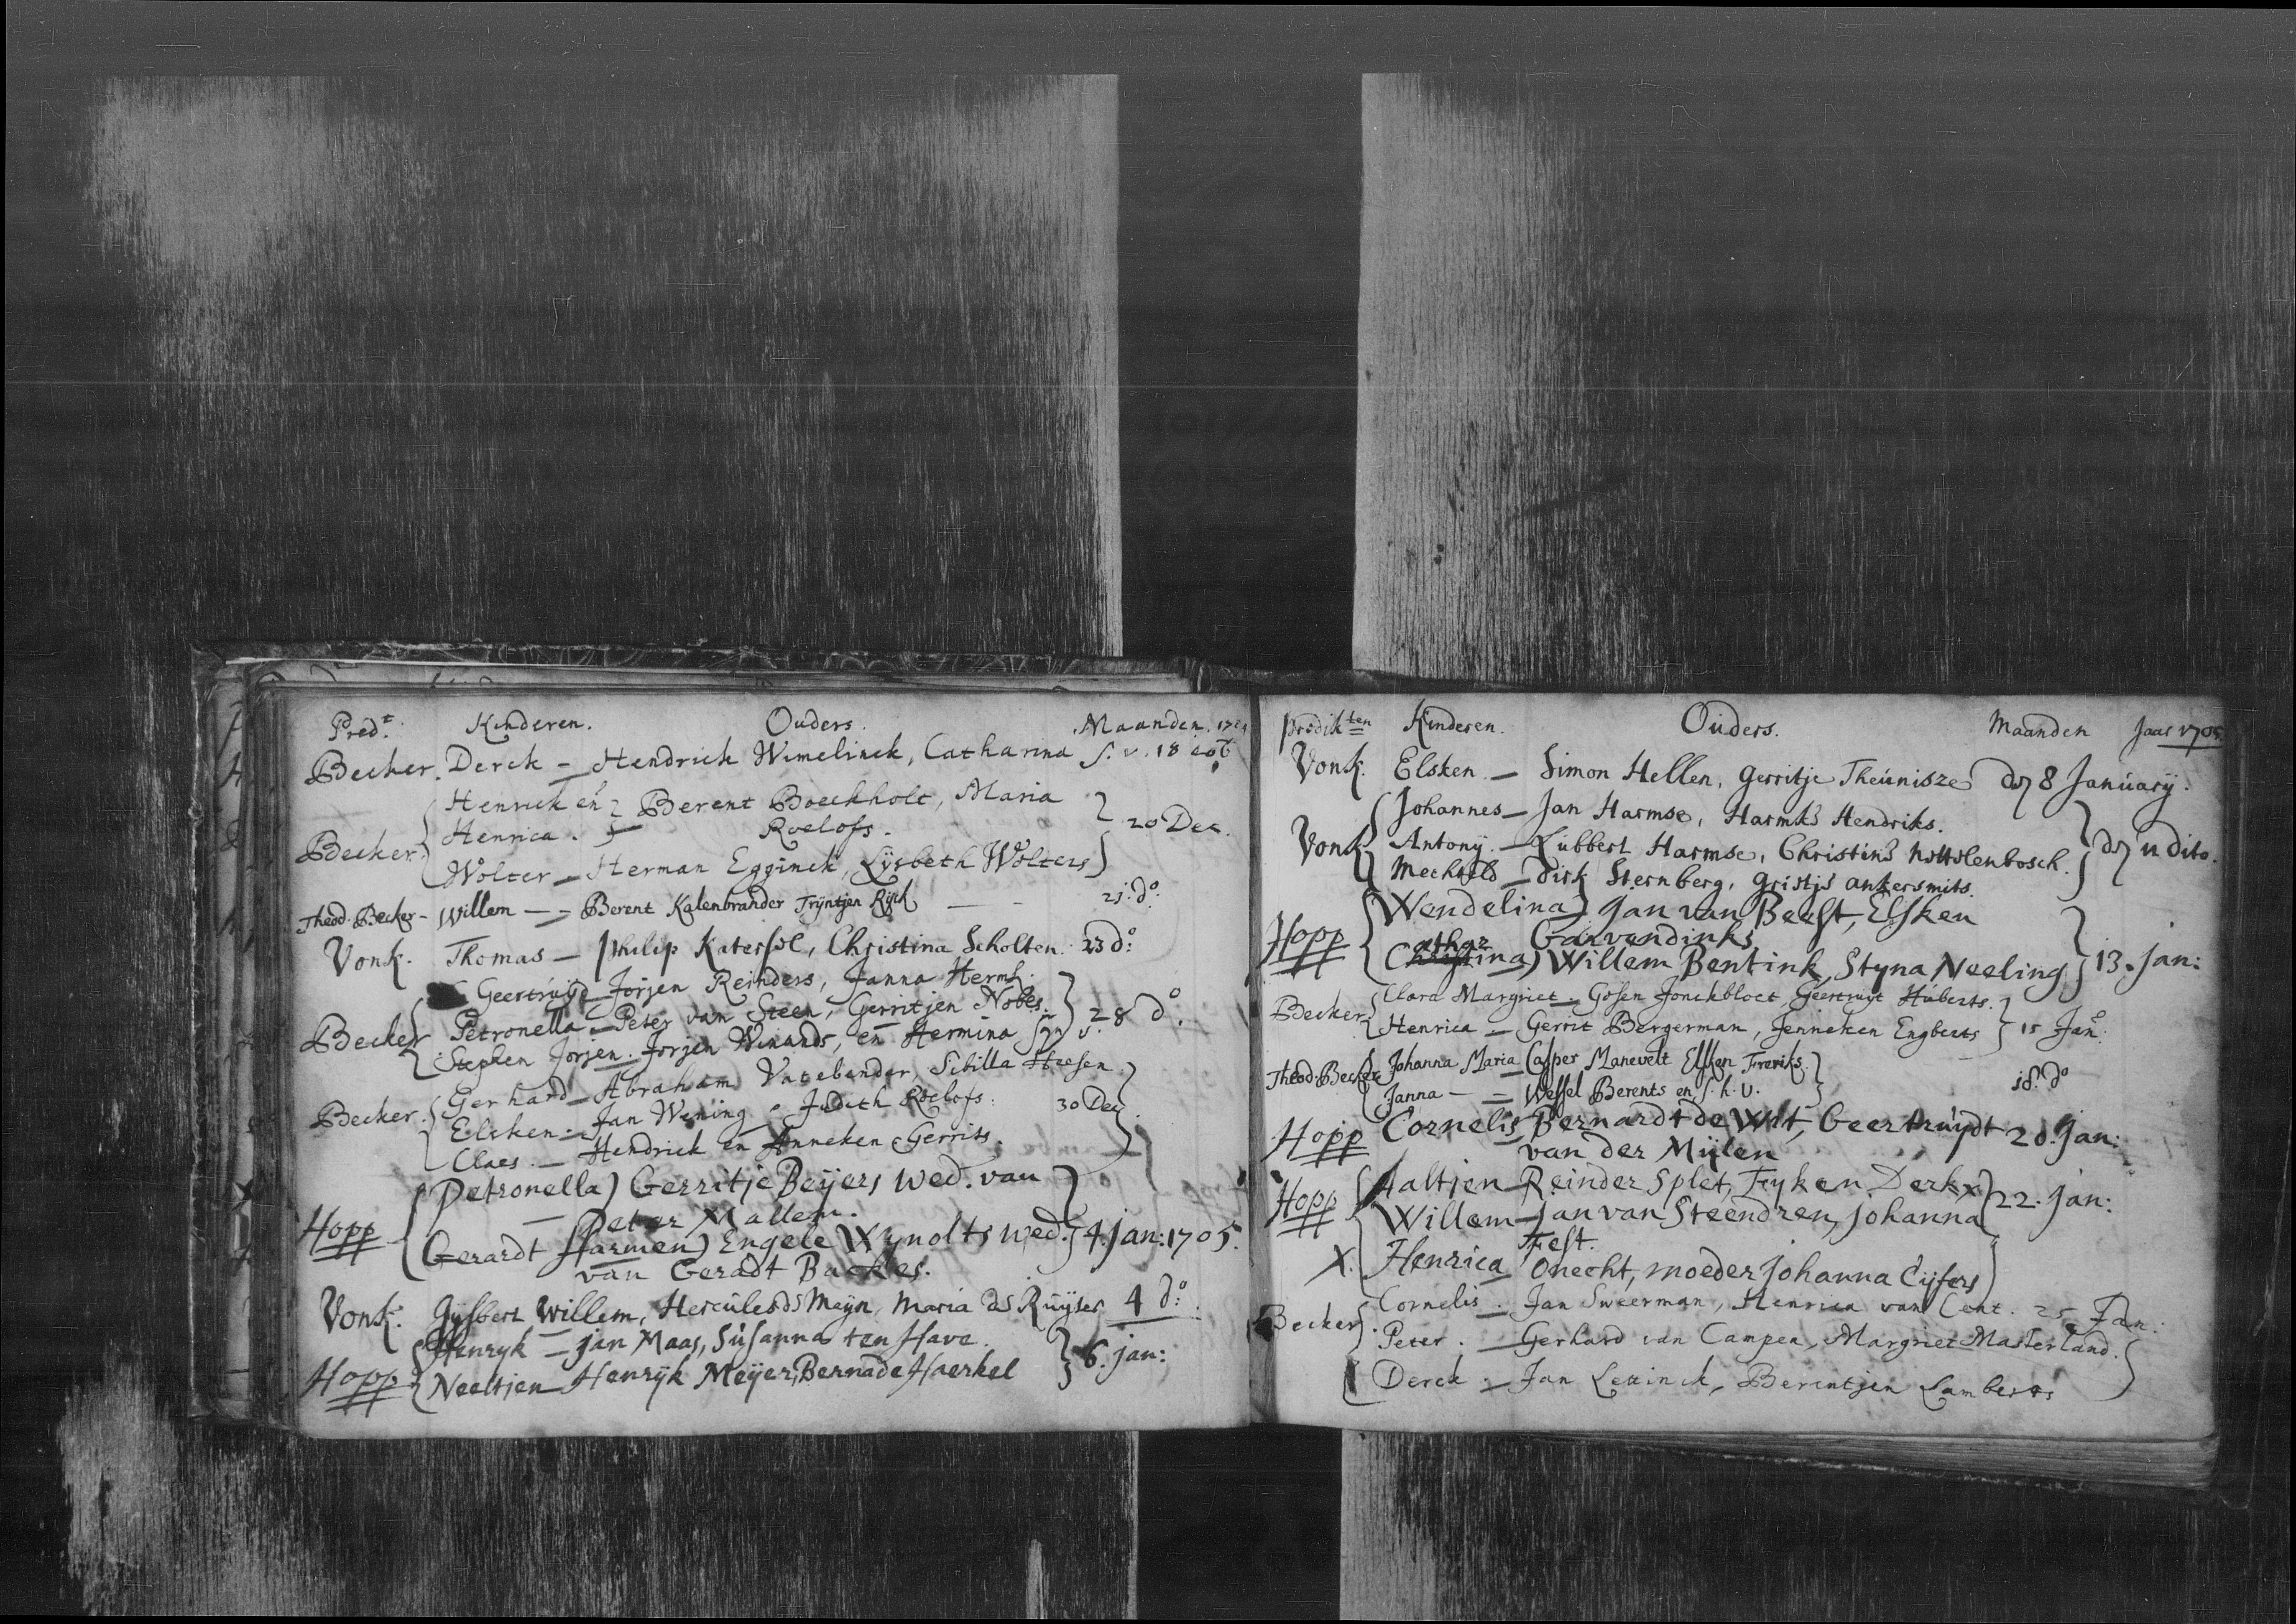 Pred.t Kinderen. Ouders. Maanden. 1704
Becker. Derck - Hendrick Wimelinck, Catharina s. v. 18
Henrick en Berent Boeckholt, Maria
Becker Henrica. Roelofs. 20 Dec.
Wolter - Herman Egginck, Lÿsbeth Wolters
Theod. Becker - Willem - - Berent Kalenbrander Trÿntjen Rÿck - - 21. do:
Vonk. Thomas - Philip , Christina Scholten. 23 do:
Geertruÿd Jorjen Reinders, Janna Herms
Becker Petronella - Peter van Steen, Gerritjen Nobes. 28 do.
Stephen Jorjen. Jorjen Winands, en Hermina
Gerhard - Abraham , Sibilla Haesen.
Becker. Elsken. - Jan Wening, Judith Roelofs. 30 Dec
Claes. - Hendrick en Anneken Gerrits.
Petronella) Gerritje Beÿers wed. van
Hopp Peter Mallem.
Gerardt Harmen) Engele Wÿnolts wed. 4. jan: 1705.
van Geradt Buckes.
Vonk. Gÿsbert Willem, Hercules ds Meÿn, Maria ds Ruÿter 4 do:
Henrÿk - jan Maas, Susanna ten Have.
Hopp Neeltjen - Henrÿk Meÿer, Berna de Haerkel 6. jan:
predikten Kinderen. Ouders. Maanden Jaar 1705
Vonk. Elsken. - Simon Hellen, Gerritje Theunisze 8 Januarÿ.
Johannes - Jan Harmse, Harmke Hendriks.
Vonk Antonÿ. - Lubbert Harmse, Christina . 11 dito.
Mechteld - Dirk Sternberg, Grietje ankersmits.
Wendelina) Jan van Beest, Elsken
Hopp Garvendinks
Cathar
Christina) Willem Bentink, Stÿna Neeling 13. jan:
Becker. Clara Margriet. Gosen Jonckbloet, Geertruyt Huberts.
Henrica - Gerrit Bergerman, Jenneken Engberts 15 Jan:
Theod. Becker Johanna Maria Casper Manevelt Elsken Freriks.
Janna - - Wessel Berents en s. h. v. 18. do
Hopp Cornelis Bernardt de Wit, Geertruÿdt 20. jan:
van der Mÿlen
Aaltjen - Reinder Splet, Fÿken Derkx
Hopp Willem - jan van Steendren, Johanna 22. jan:
Fest.
X. Henrica Onecht, moeder Johanna Cÿfers
Cornelis. - Jan Sweerman, Henrica van Cent. 25 Jan.
Becker Peter. - Gerhard van Campen, Margriet Masterland.
Derck. - Jan Lettinck, Berentjen Lamberts